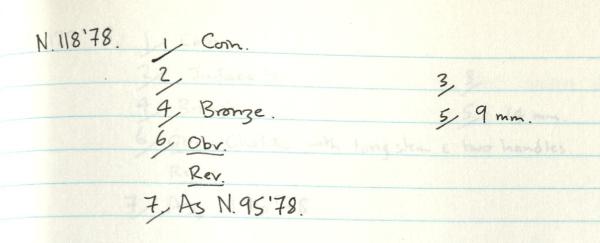 N.118'78. 1, Coin.
2, 3,
4, Bronze. 5, 9 mm.
6, Obv.
Rev.
7, As N.95'78.